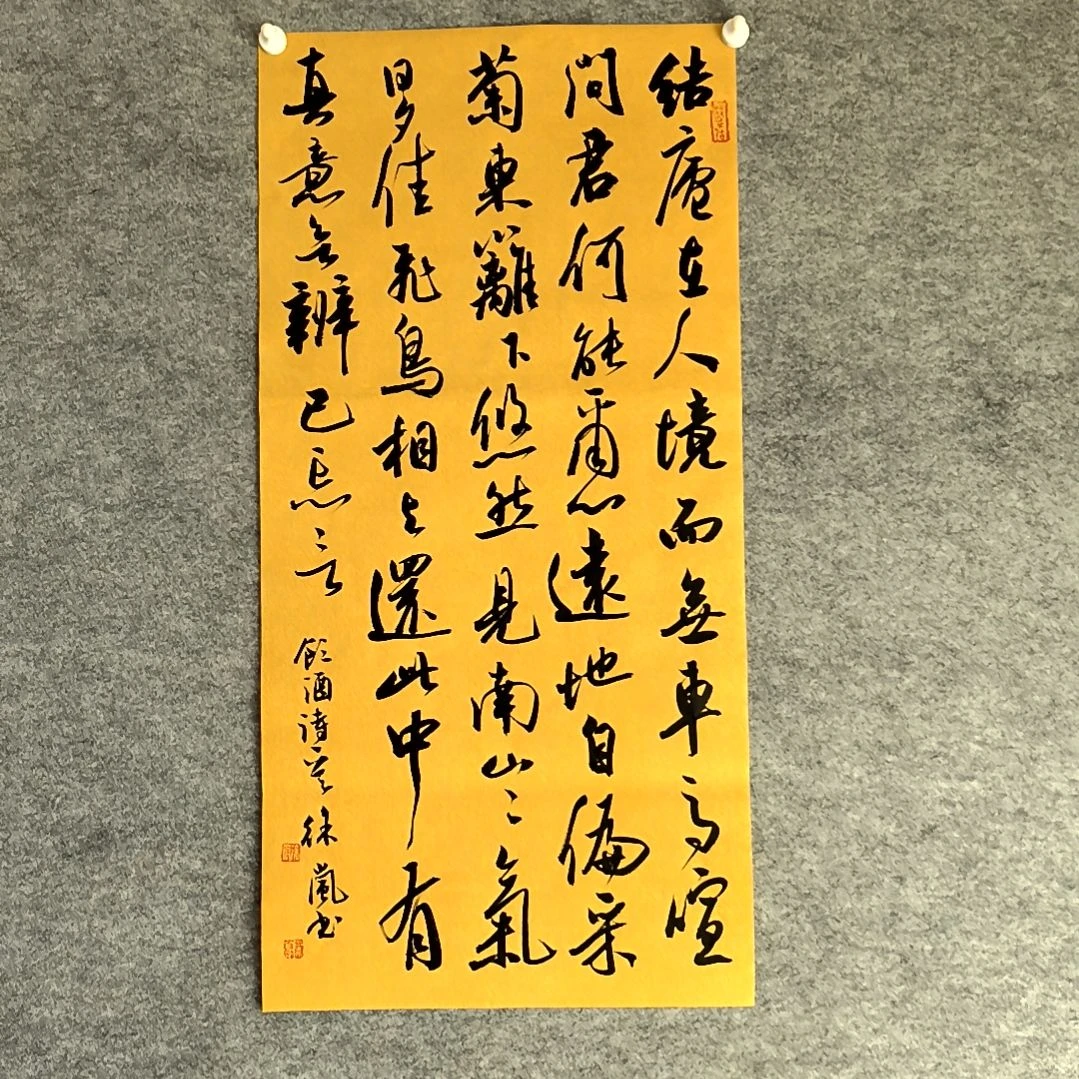 結廬在人境而無車馬喧
問君何能爾心遠地自偏采
菊東籬下悠然見南山〻氣
日夕佳飛鳥相与還此中有
真意辨已忘言
飲酒诗 徐嵐书